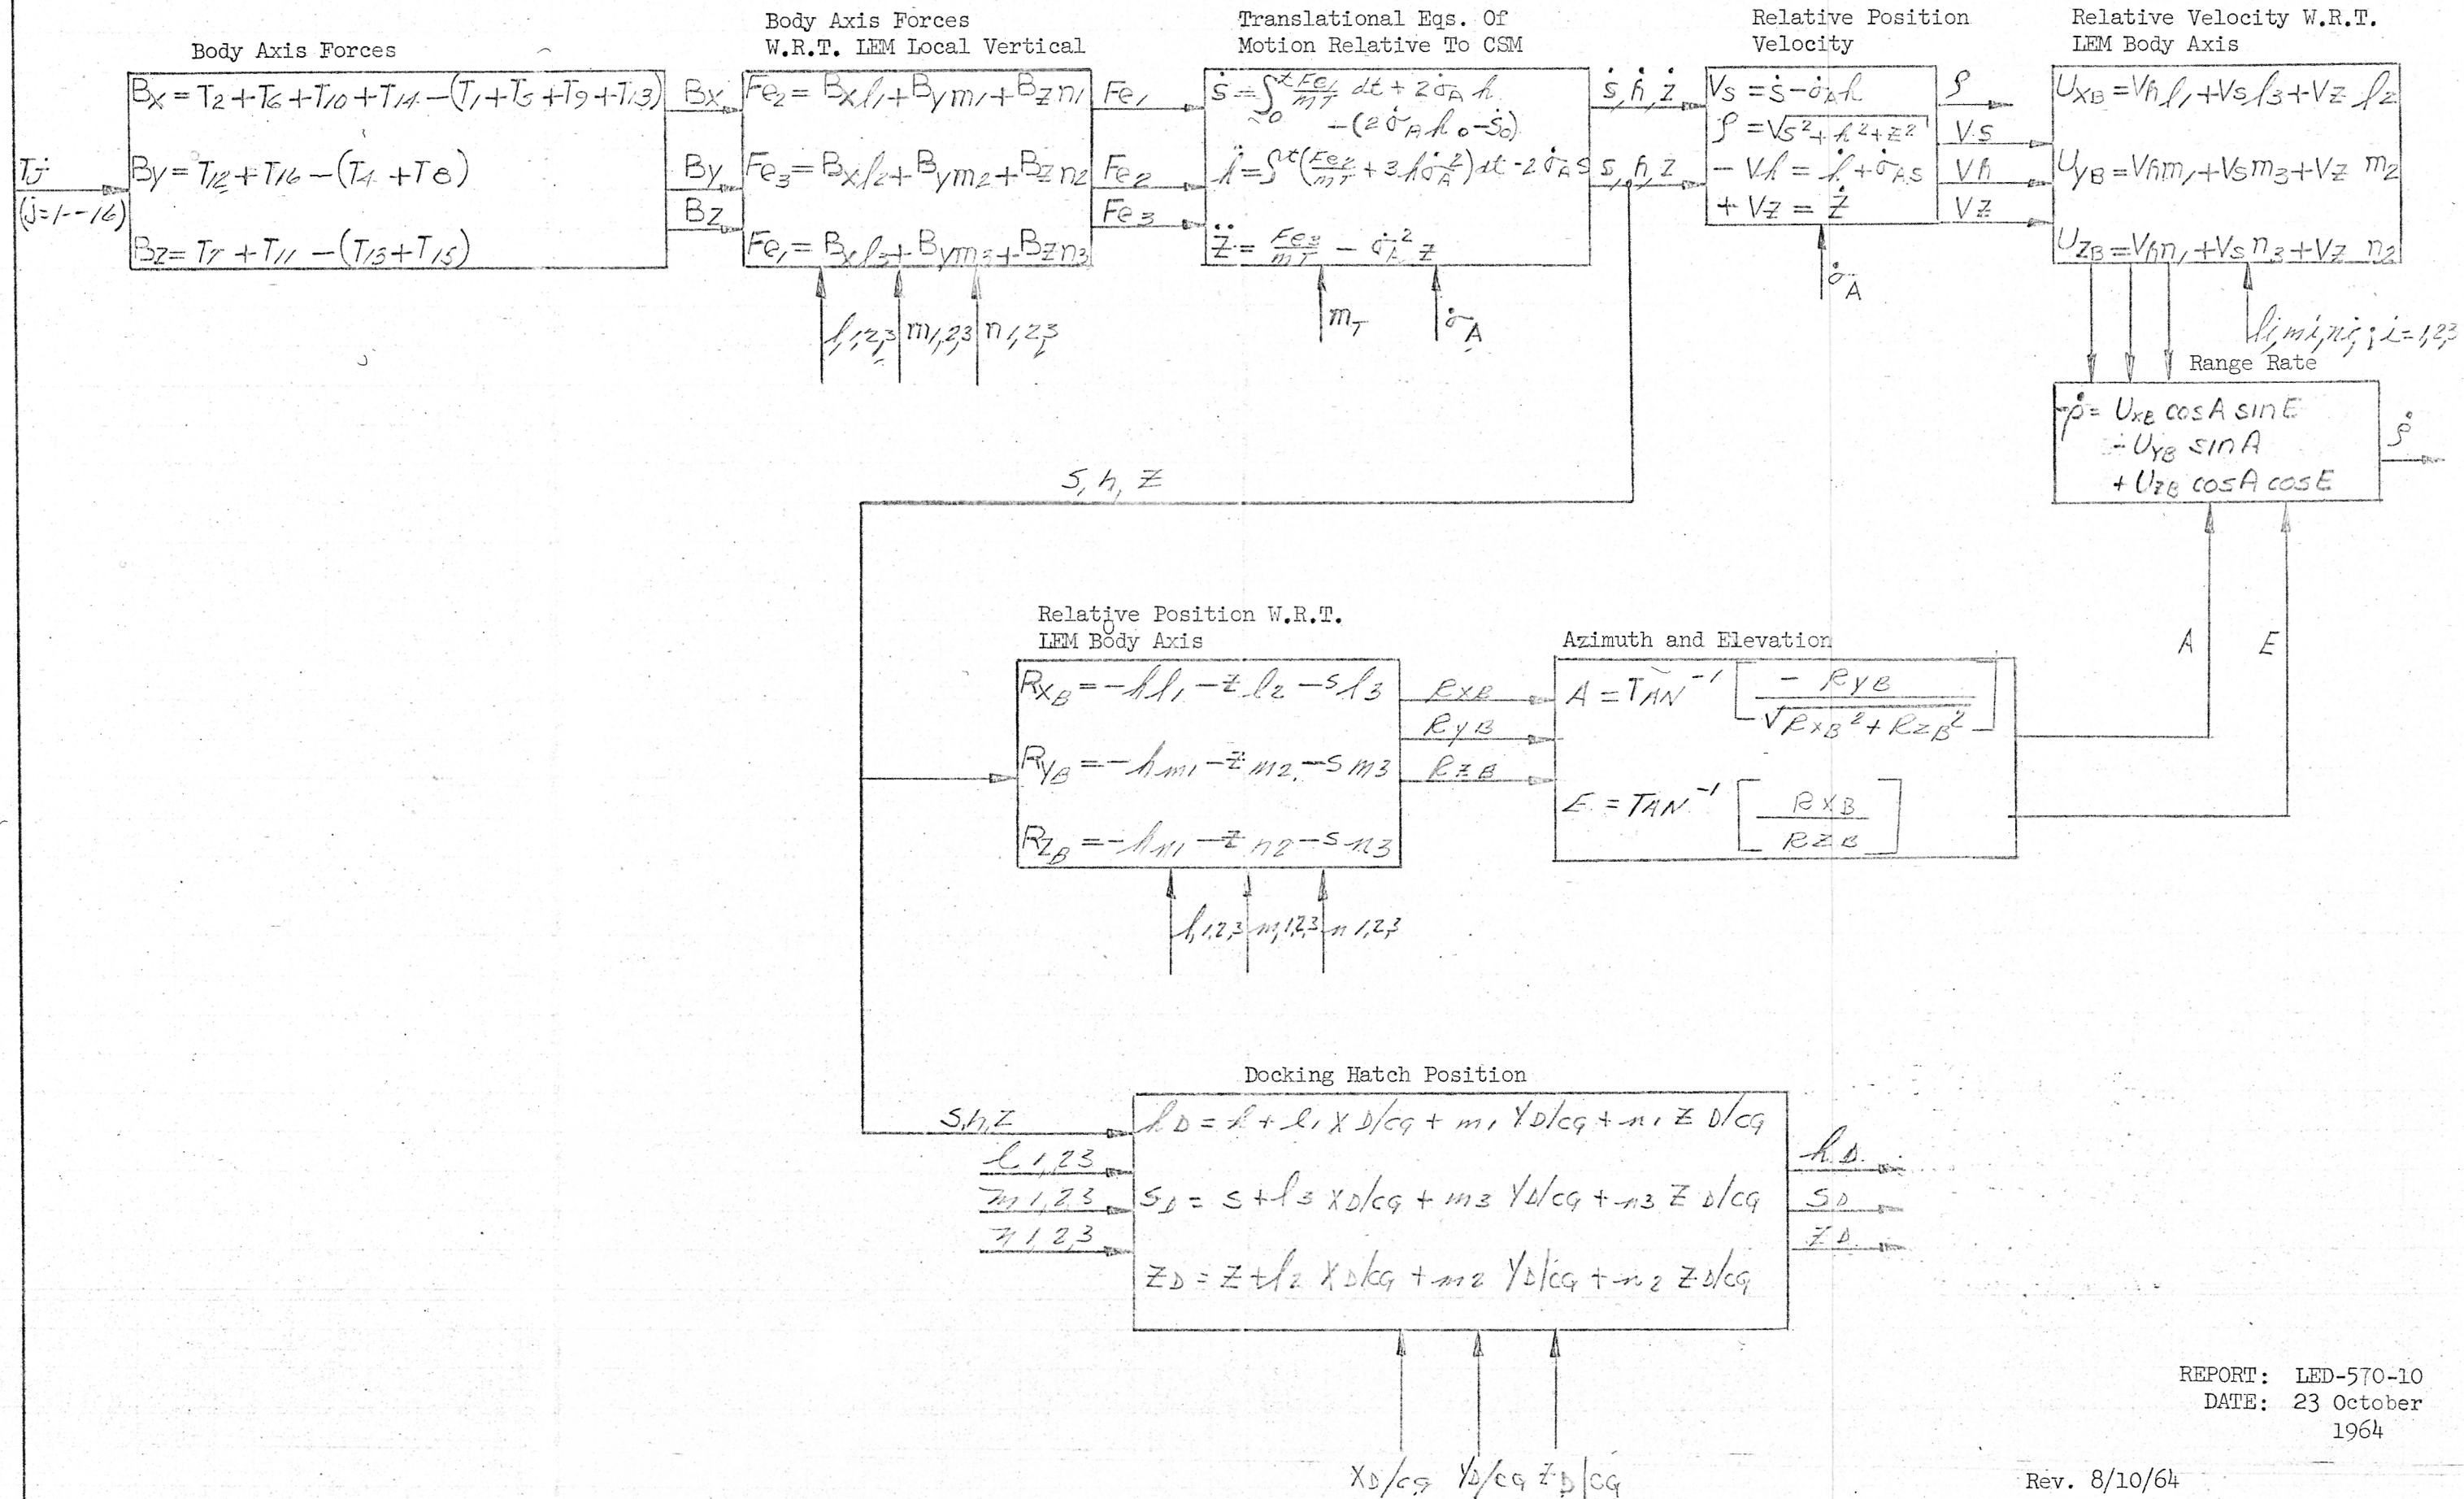 Body Axis Forces
Tj
(j=1--16)
Bx = T2 + T6 + T10 + T14 - (T1 + T5 + T9 + T13)
By = T12 + T16 - (T4 + T8)
Bz = T7 + T11 - (T13 + T15)
Bx
By
Bz
Body Axis Forces
W.R.T. LEM Local Vertical
Fe2 = Bxl1 + Bym1 + Bzn1
Fe3 = Bxl2 + Bym2 + Bzn2
Fe1 = Bxl3 + Bym3 + Bzn3
l1,2,3 m1,2,3 n1,2,3
Fe1
Fe2
Fe3
Translational Eqs. Of
Motion Relative To CSM
ṡ = ∫₀ᵗ Fe1/mT dt + 2σ̇A h
- (2σ̇A h0 - ṡ0)
ḣ = ∫ᵗ (Fe2/mT + 3hσ̇A²) dt - 2σ̇A s
z̈ = Fe3/mT - σ̇A² z
mT σ̇A
ṡ, ḣ, ż
s, h, z
Relative Position
Velocity
Vs = ṡ - σ̇A h
ρ = √s² + h² + z²
- Vh = ḣ + σ̇A s
+ Vz = ż
σ̇A
ρ
Vs
Vh
Vz
Relative Velocity W.R.T.
LEM Body Axis
UXB = Vhl1 + Vsl3 + Vz l2
UYB = Vhm1 + Vsm3 + Vz m2
UZB = Vhn1 + Vsn3 + Vz n2
li, mi, ni; i=1,2,3
Range Rate
-ρ̇ = UXB cos A sin E
- UYB sin A
+ UZB cos A cos E
ρ̇
S, h, Z
Relative Position W.R.T.
LEM Body Axis
RXB = -hl1 - z l2 - s l3
RYB = -hm1 - z m2 - s m3
RZB = -hn1 - z n2 - s n3
l1,2,3 m1,2,3 n1,2,3
RXB
RYB
RZB
Azimuth and Elevation
A = TAN⁻¹ [ - RYB / √RXB² + RZB² ]
E = TAN⁻¹ [ RXB / RZB ]
A E
Docking Hatch Position
S,h,Z
l 1,2,3
m 1,2,3
n 1,2,3
hD = h + l1 XD/CG + m1 YD/CG + n1 ZD/CG
SD = S + l3 XD/CG + m3 YD/CG + n3 ZD/CG
ZD = Z + l2 XD/CG + m2 YD/CG + n2 ZD/CG
hD
SD
ZD
XD/CG YD/CG ZD/CG
REPORT: LED-570-10
DATE: 23 October
1964
Rev. 8/10/64